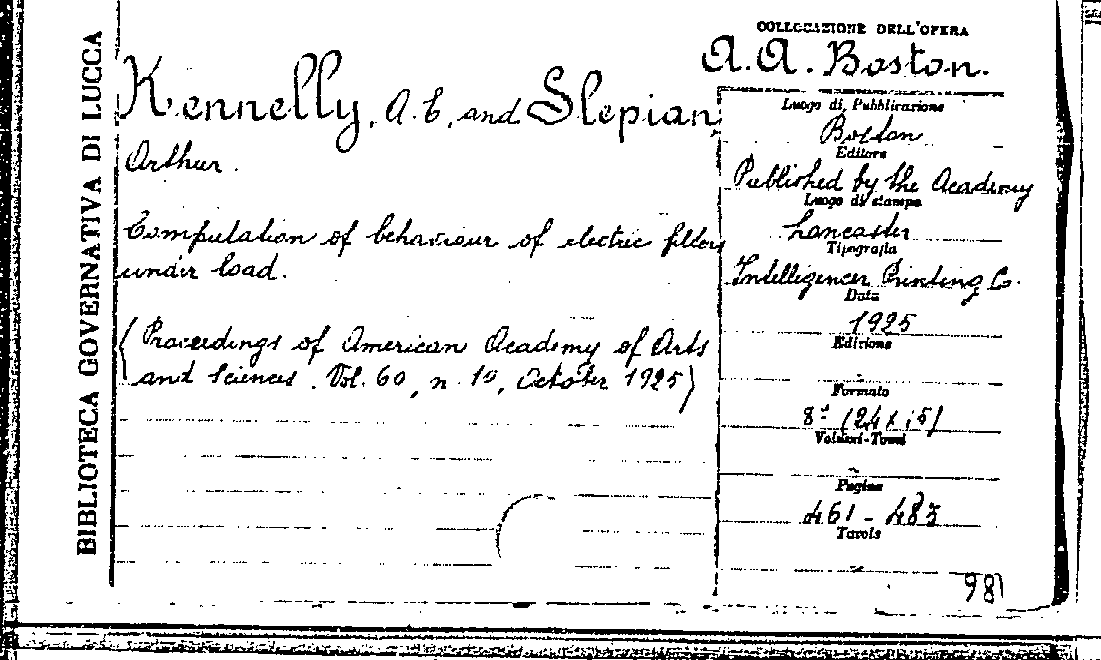 BIBLIOTECA GOVERNATIVA DI LUCCA
Kennelly, A. E. and Slepian
Arthur.
Computation of behaviour of electric filters
under load.
(Proceedings of American Academy of Arts
and Sciences. Vol. 60, n. 10, October 1925)
COLLOCAZIONE DELL'OPERA
A. A. Boston.
Luogo di Pubblicazione
Boston
Editore
Published by the Academy
Luogo di stampa
Lancaster
Tipografia
Intelligencer Printing Co.
Data
1925
Edizione
-
Formato
8° (24 x 15)
Volumi-Tomi
-
Pagine
461 - 483
Tavole
-
981